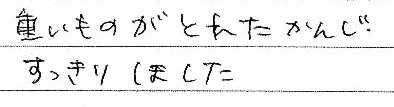 重いものがとれたかんじ
すっきりしました